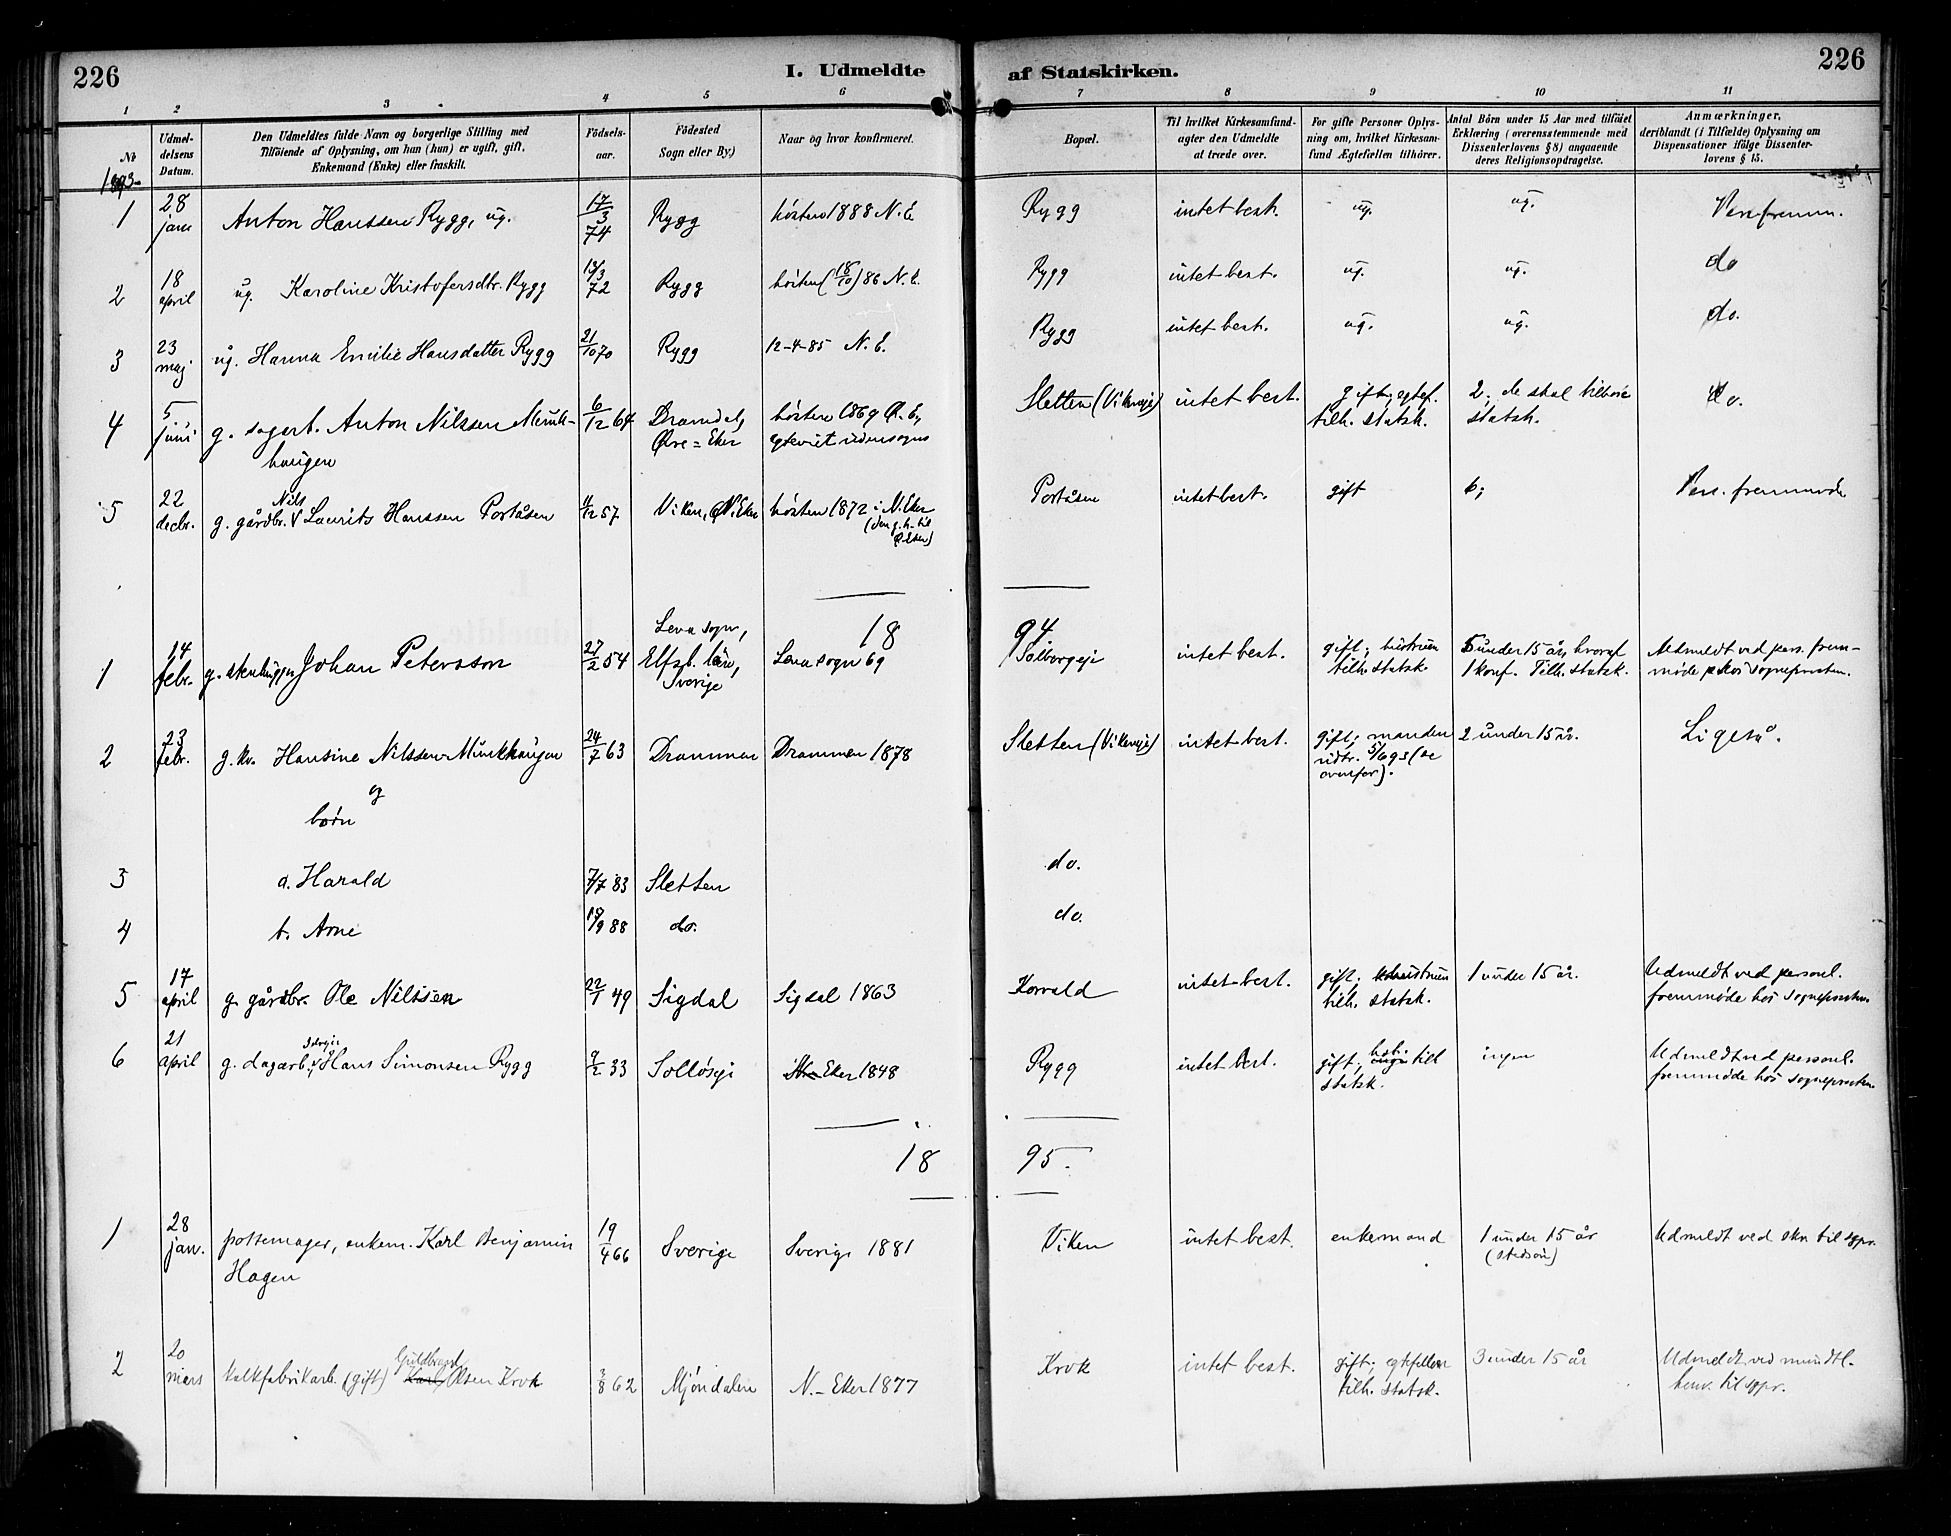 226
I. Udmeldte af Statskirken.
226
1 2 3 4 5 6 7 8 9 10 11
No
Udmel-
delsens
Datum.
Den Udmeldtes fulde Navn og borgerlige Stilling med
Tilföiende af Oplysning, om han (hun) er ugift, gift,
Enkemand (Enke) eller fraskilt.
Födsels-
aar.
Födested
Sogn eller By.)
Naar og hvor konfirmeret.
Bopæl.
Til hvilket Kirkesamfund-
agter den Udmeldte
at træde over.
For gifte Personer Oplys-
ning om, hvilket Kirkesam-
fund Ægtefællen tilhörer.
Antal Börn under 15 Aar med tilföiet
Erklæring (overensstemmende med
Dissenterlovens §8) angaaende
deres Religionsopdragelse.
Anmærkninger,
deriblandt (i Tilfælde) Oplysning om
Dispensationer ifölge Dissenter-
lovens § 15.
1893
1 28 jan Anton Hanssen Rygg, ug. 17/3 74 Rygg hösten 1888 N. E. Rygg intet best. ug. ug. Pers. fremm.
2 18 april ug. Karoline Kristofersdtr. Rygg 13/3 72 Rygg hösten (18/10) 86 N. E. Rygg intet best. ug. ug. do
3 23 maj ug. Hanna Emilie Hansdatter Rygg 21/10 70 Rygg 12-4-85 N. E. Rygg intet best. ug. ug. do.
4 5 juni g. sagarb. Anton Nilssen Munk- 6/12 64 Dramdal, hösten 1869 Ø. E., Sletten (Vikenejе) intet best. gift; egtef. 2; de skal tilhöre do.
haugen Øvre=Eker tilh. statsk. statsk.
5 22 decbr. g. gårdbr. Nils Laurits Hanssen Portåsen 4/12 57 Viken, N. Eker hösten 1872 i N. Eker Portåsen intet best. gift 6; Pers. fremmöde
(den g. h. til
Ø. Eker)
18 94
1 14 febr. g. stenhugger Johan Petersson 27/2 54 Lena sogn, Elfsb. län, Sverige Lena sogn 69 Solbergeje intet best. gift; hustruen 5 under 15 år, hvoraf Udmeldt ved pers. frem-
tilh. statsk. 1 konf. Tilh. statsk. möde hos sogneprosten.
2 23 febr. g. kv. Hansine Nilssen Munkhaugen 24/7 63 Drammen Drammen 1878 Sletten (Vikeneje) intet best. gift; manden 2 under 15 år. Ligeså.
udtr. 5/6 93 (se
ovenfor).
og
börn
3 a. Harald 7/7 83 Sletten do.
4 b. Arne 18/9 88 do. do.
5 17 april g. gårdbr. Ole Nilssen 22/1 49 Sigdal Sigdal 1863 Korvald intet best. gift; hustruen 1 under 15 år. Udmeldt ved personl.
tilh. statsk. fremmöde hos sogneprosten
6 21 april g. dagarb. Hans Simonsen Rygg 9/2 33 Sollöseje Eker 1848 Rygg intet best. gift; hstr. tilh ingen Udmeldt ved personl.
statsk. fremmöde hos sogneprosten
18 95.
1 28 jan. pottemager, enkem. Karl Benjamin 19/4 66 Sverige Sverige 1881 Viken intet best. enkemand 1 under 15 år Udmeldt ved skr. til sgpr.
Hagen (stedsön)
2 20 mars kalkfabrikarb. (gift) Guldbrand Olsen Krok 3/8 62 Mjöndalen N.-Eker 1877 Krok intet best. gift; egtefellen 3 under 15 år Udmeldt ved mundtl.
tilh. statsk. henv. til sgpr.